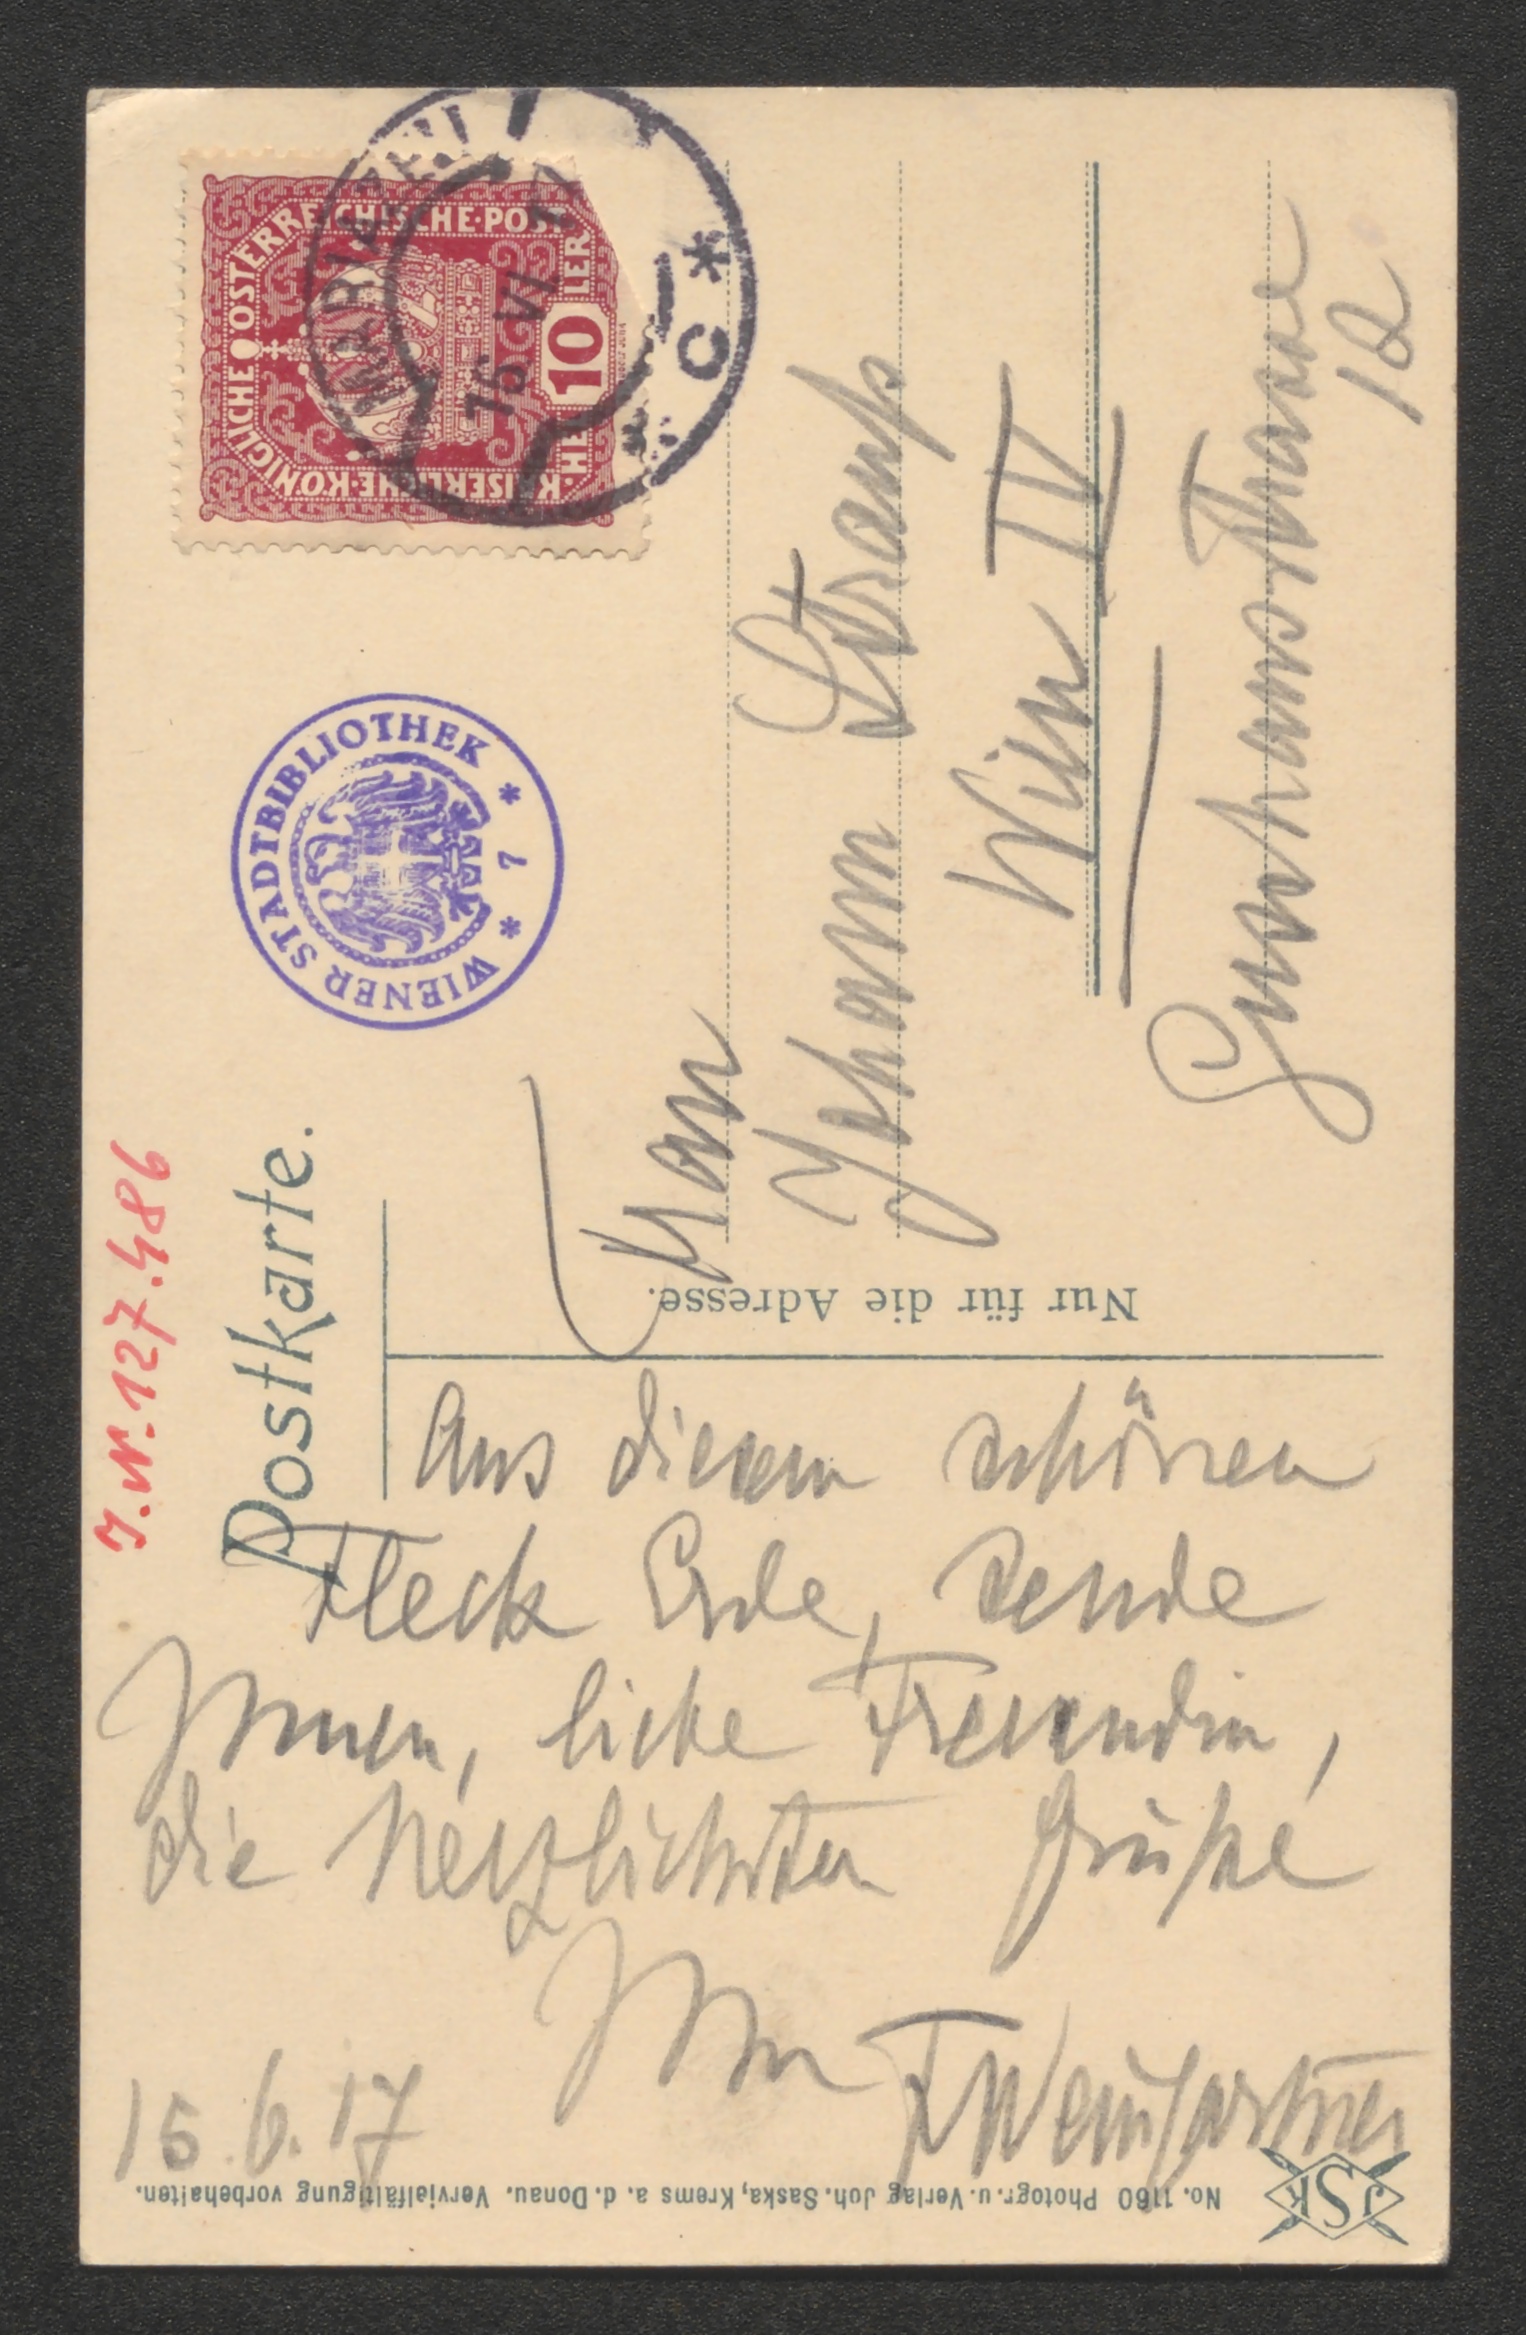 KAISERLICHE·KÖNIGLICHE ÖSTERREICHISCHE·POST
10 HELLER
MARIAZELL
15 VI 17
* C *
WIENER STADTBIBLIOTHEK
* 7 *
J.N. 127.486
Postkarte.
Nur für die Adresse.
Frau
Johann Strauß
Wien IV
Gusshausstrasse
12
Aus diesem schönen
Fleck Erde, sende
Ihnen, liebe Freundin,
die herzlichsten Grüße
Ihr
FWeingartner
15.6.17
No. 1160 Photogr. u. Verlag Joh. Saska, Krems a. d. Donau. Vervielfältigung vorbehalten.
JSK